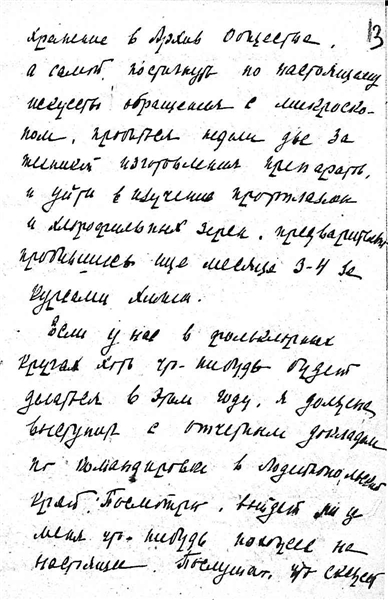 13
хранение в Архив Общества,
а самой постигнуть по настоящему
искусство обращения с микроско-
пом, пробиться недели две за
техникой изготовления препарата,
и уйти в изучение протоплазмы
и хлорофильных зерен, предварительно
пробившись еще месяца 3-4 за
курсами химии.
Если у нас в фольклорных
кругах хоть что-нибудь будет
делаться в этом году, я должна
выступить с отчетным докладом
по командировке в Лодейнопольский
край. Посмотрю, выйдет ли у
меня что-нибудь похожее на
настоящее. Послушаю, что скажет